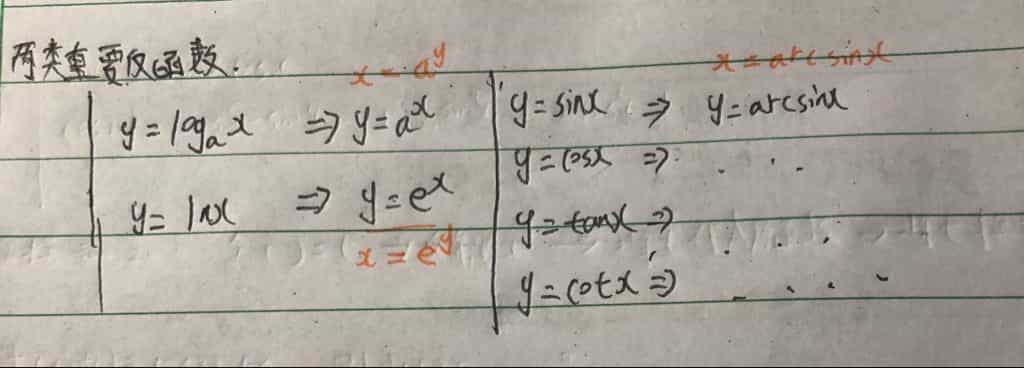 两类重要反函数.
x = a^y
y = log_a x ⇒ y = a^x
y = lnx ⇒ y = e^x
x = e^y
x = arcsinx
y = sinx ⇒ y = arcsinx
y = cosx ⇒ . . .
y = tanx ⇒ . . .
y = cotx ⇒ . . . .